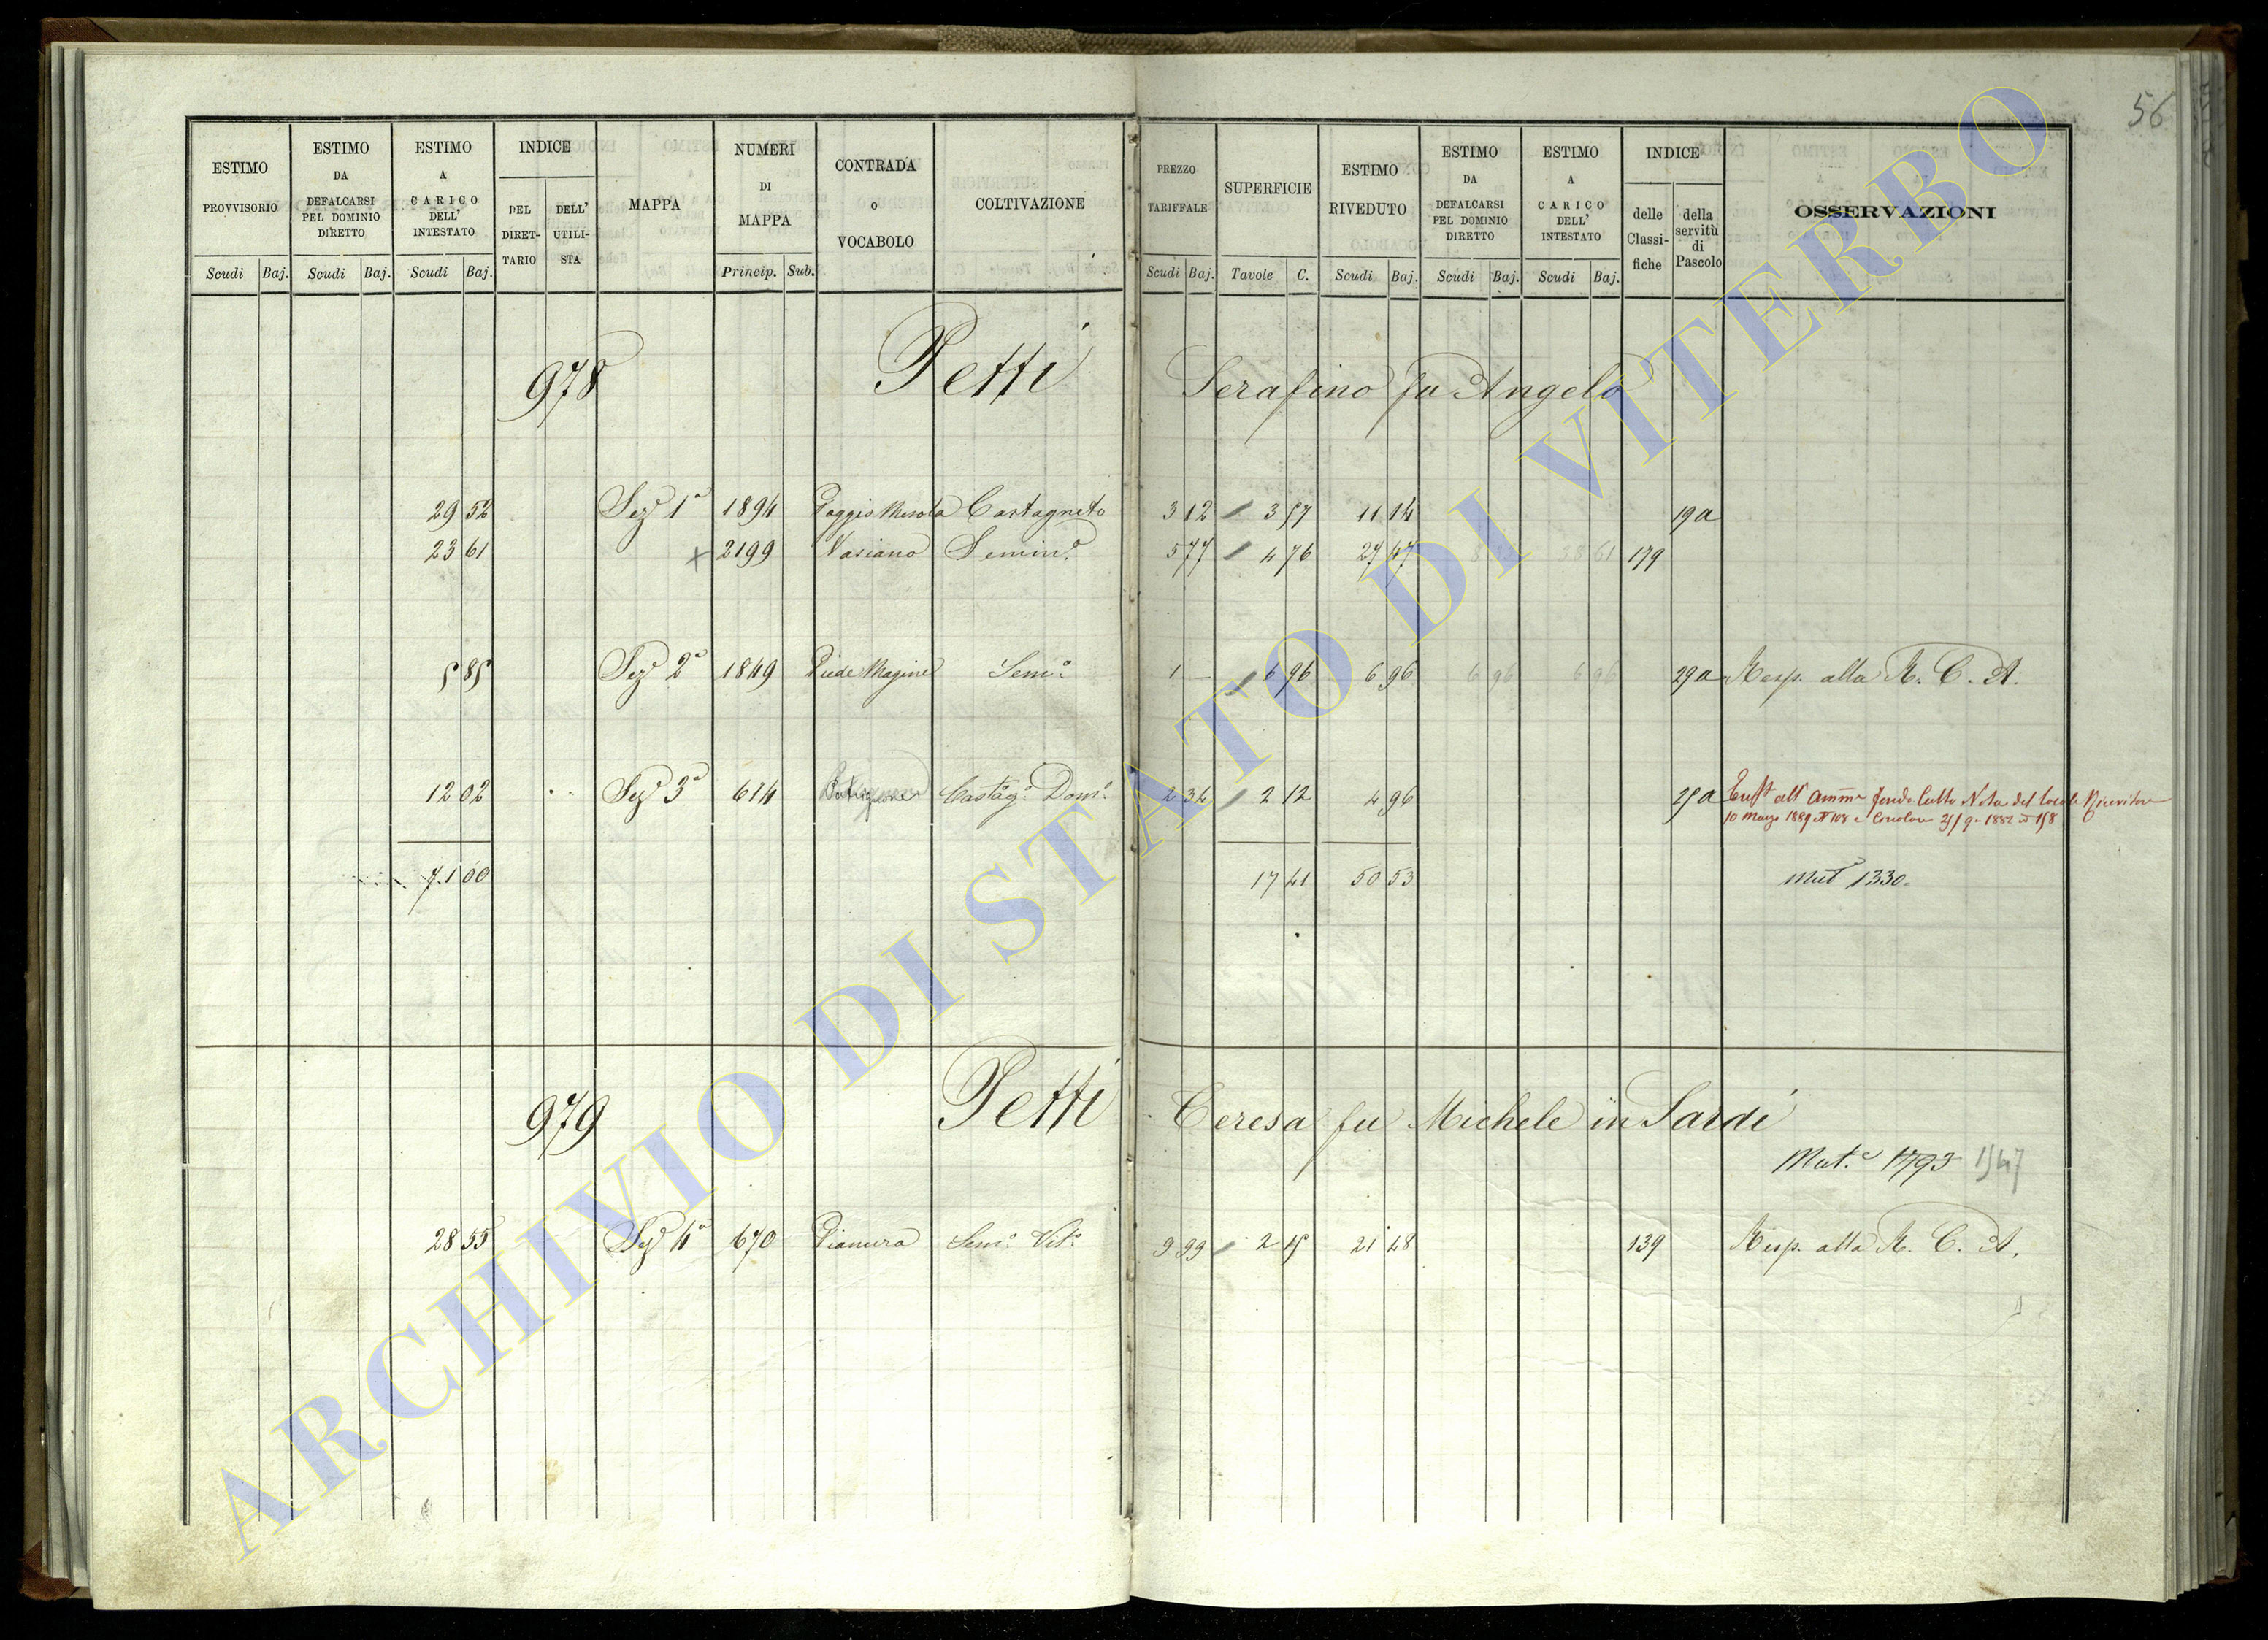 56
ESTIMO PROVVISORIO Scudi Baj.
ESTIMO DA DEFALCARSI PEL DOMINIO DIRETTO Scudi Baj.
ESTIMO A CARICO DELL' INTESTATO Scudi Baj.
INDICE DEL DIRET-TARIO DELL' UTILI-STA
MAPPA
NUMERI DI MAPPA Princip. Sub.
CONTRADA O VOCABOLO
COLTIVAZIONE
PREZZO TARIFFALE Scudi Baj.
SUPERFICIE Tavole C.
ESTIMO RIVEDUTO Scudi Baj.
ESTIMO DA DEFALCARSI PEL DOMINIO DIRETTO Scudi Baj.
ESTIMO A CARICO DELL' INTESTATO Scudi Baj.
INDICE delle Classi-fiche della servitù di Pascolo
OSSERVAZIONI
978 Petti Serafino fu Angelo
29 52 Sez.e 1a 1894 Castagneto 3 12 3 57 11 14 19a
23 61 2199 Vasiano Semin.o 5 77 4 76 27 47 179
5 85 Sez.e 2a 1849 Semo. 1 — 6 96 6 96 6 96 6 96 29a Resp. alla R. C. A.
12 02 Sez.e 3a 614 Castag.o Dom.o 2 34 2 12 4 96 25a
10 Marzo 1889 N 108
71 00 17 41 50 53 Mut 1330.
979 Petti Teresa fu Michele in Sardi
Mut.e 1793 1547
28 55 Sez.e 4a 670 Pianura Semo. Vito. 9 99 2 15 21 48 139 Resp. alla R. C. A.
ARCHIVIO DI STATO DI VITERBO